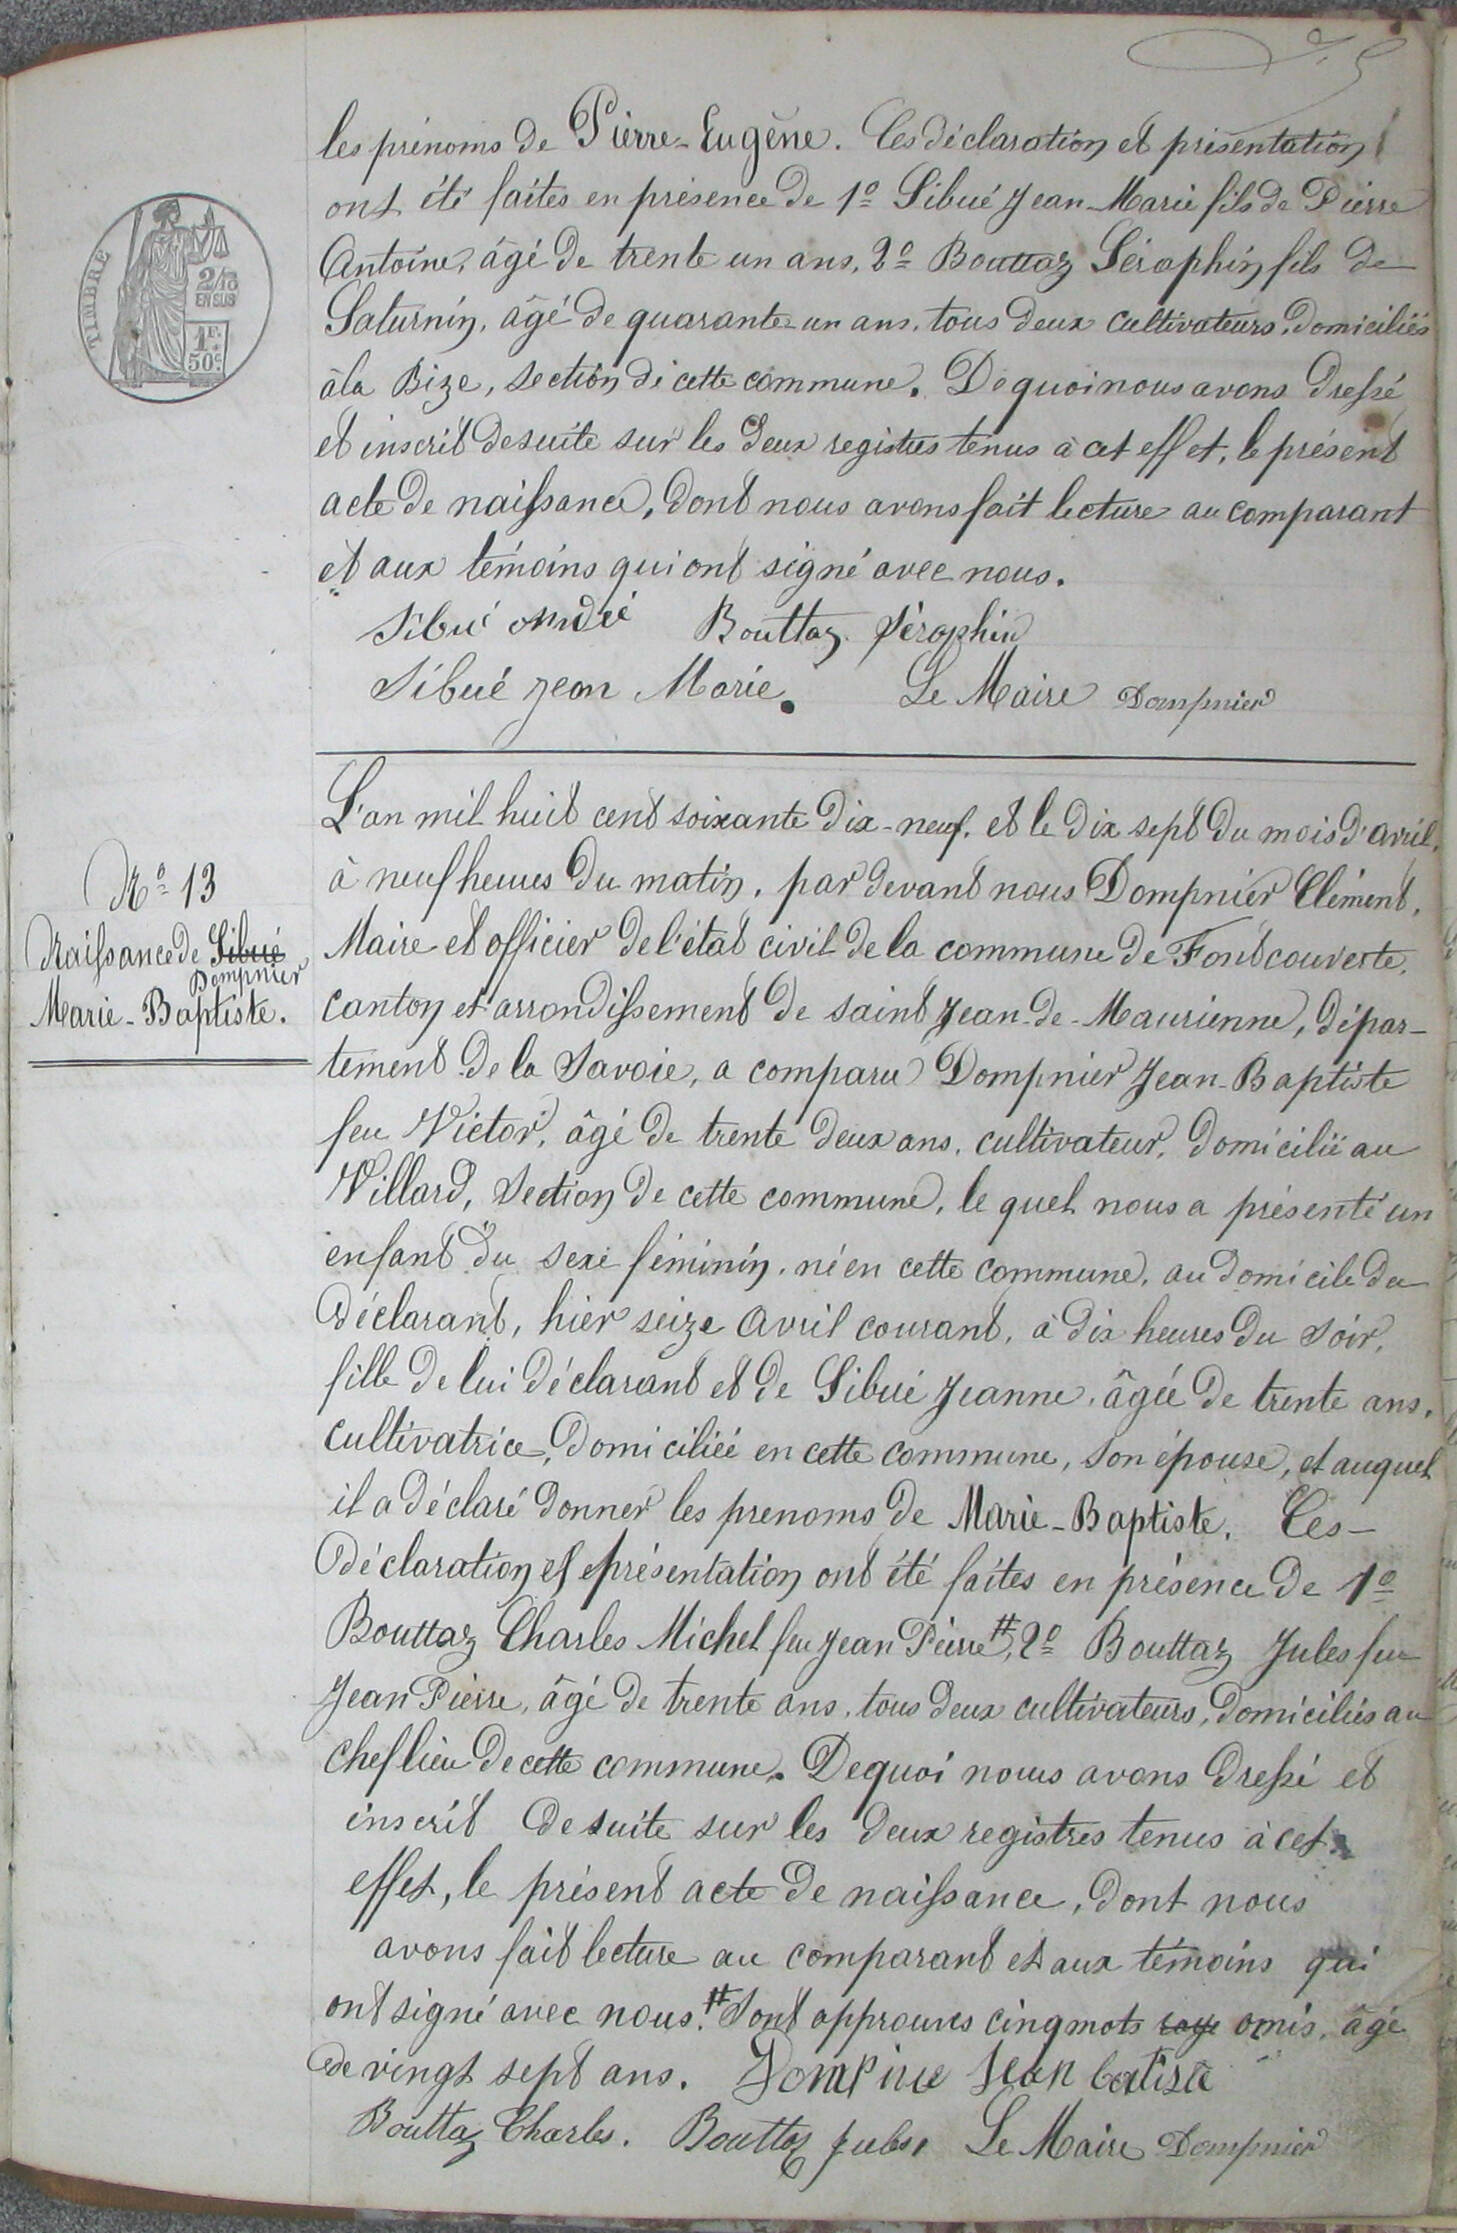 les prénoms de Pierre-Eugène. Ces déclaration et présentation
ont été faites en présence de 1º Sibué Jean-Marie fils de Pierre
Antoine, âgé de trente un ans, 2º Bouttaz Séraphin fils de
Saturnin, âgé de quarante-un ans, tous deux cultivateurs, domiciliés
à la Bize, section de cette commune. De quoi nous avons dressé
et inscrit de suite sur les deux registres tenus à cet effet, le présent
acte de naissance, dont nous avons fait lecture au comparant
et aux témoins qui ont signé avec nous.
Sibué André Bouttaz Séraphin
Sibué Jean Marie. Le Maire Dompnier
TIMBRE
2/10
EN SUS
1F.
50c.
Nº 13
Naissance de Sibué
Dompnier
Marie-Baptiste.
L'an mil huit cent soixante dix-neuf, et le dix sept du mois d'avril,
à neuf heures du matin, par devant nous Dompnier Clément,
Maire et officier de l'état civil de la commune de Fontcouverte,
canton et arrondissement de saint Jean-de-Maurienne, dépar-
tement de la Savoie, a comparu Dompnier Jean-Baptiste
feu Victor, âgé de trente deux ans, cultivateur, domicilié au
Villard, Section de cette commune, le quel nous a présenté un
enfant du sexe féminin, né en cette commune, au domicile du
déclarant, hier seize Avril courant, à dix heures du soir,
fille de lui déclarant et de Sibué Jeanne, âgée de trente ans,
cultivatrice, domiciliée en cette commune, son épouse, et auquel
il a déclaré donner les prenoms de Marie-Baptiste. Ces-
déclaration et présentation ont été faites en présence de 1º
Bouttaz Charles Michel feu Jean Pierre #, 2º Bouttaz Jules feu
Jean Pierre, âgé de trente ans, tous deux cultivateurs, domiciliés au
chef lieu de cette commune. De quoi nous avons dressé et
inscrit de suite sur les deux registres tenus à cet
effet, le présent acte de naissance, dont nous
avons fait lecture au comparant et aux témoins qui
ont signé avec nous. # Sont approuvés cinq mots omis, âgé
de vingt sept ans. Jean batiste
Bouttaz Charles. Bouttaz Jules Le Maire Dompnier